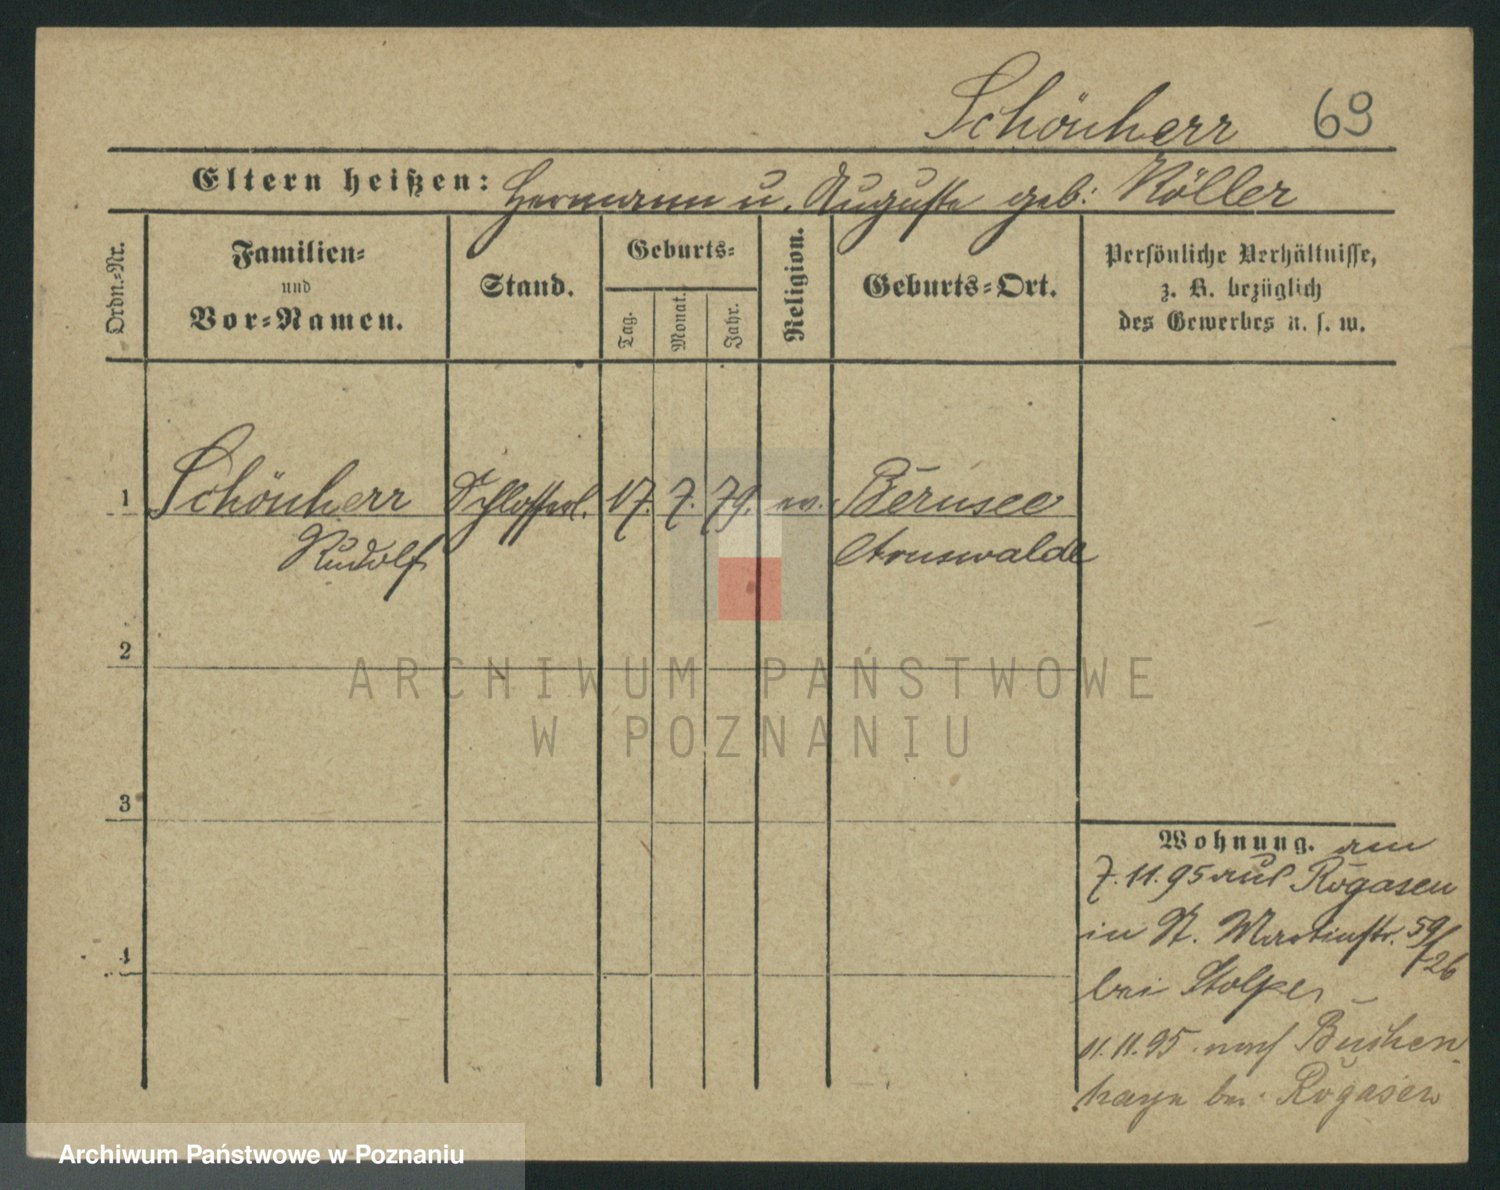 Schönherr 69
Eltern heißen: Hermann u. Auguste geb: Köller
Ordn.-Nr.
Familien-
und
Vor-Namen.
Stand.
Geburts-
Tag.
Monat.
Jahr.
Religion.
Geburts-Ort.
Persönliche Verhältnisse,
z. B. bezüglich
des Gewerbes u. s. w.
1 Schönherr Schlosserl. 17. 7. 79. ev. Bernsee
Rudolf Arnswalde
2
ARCHIWUM PAŃSTWOWE
W POZNANIU
3
Wohnung. am
7.11.95 aus Rogasen
in St. Martinstr. 59/26
bei Stolper
11.11.95 nach Buchen
bei Rogasen
4
Archiwum Państwowe w Poznaniu